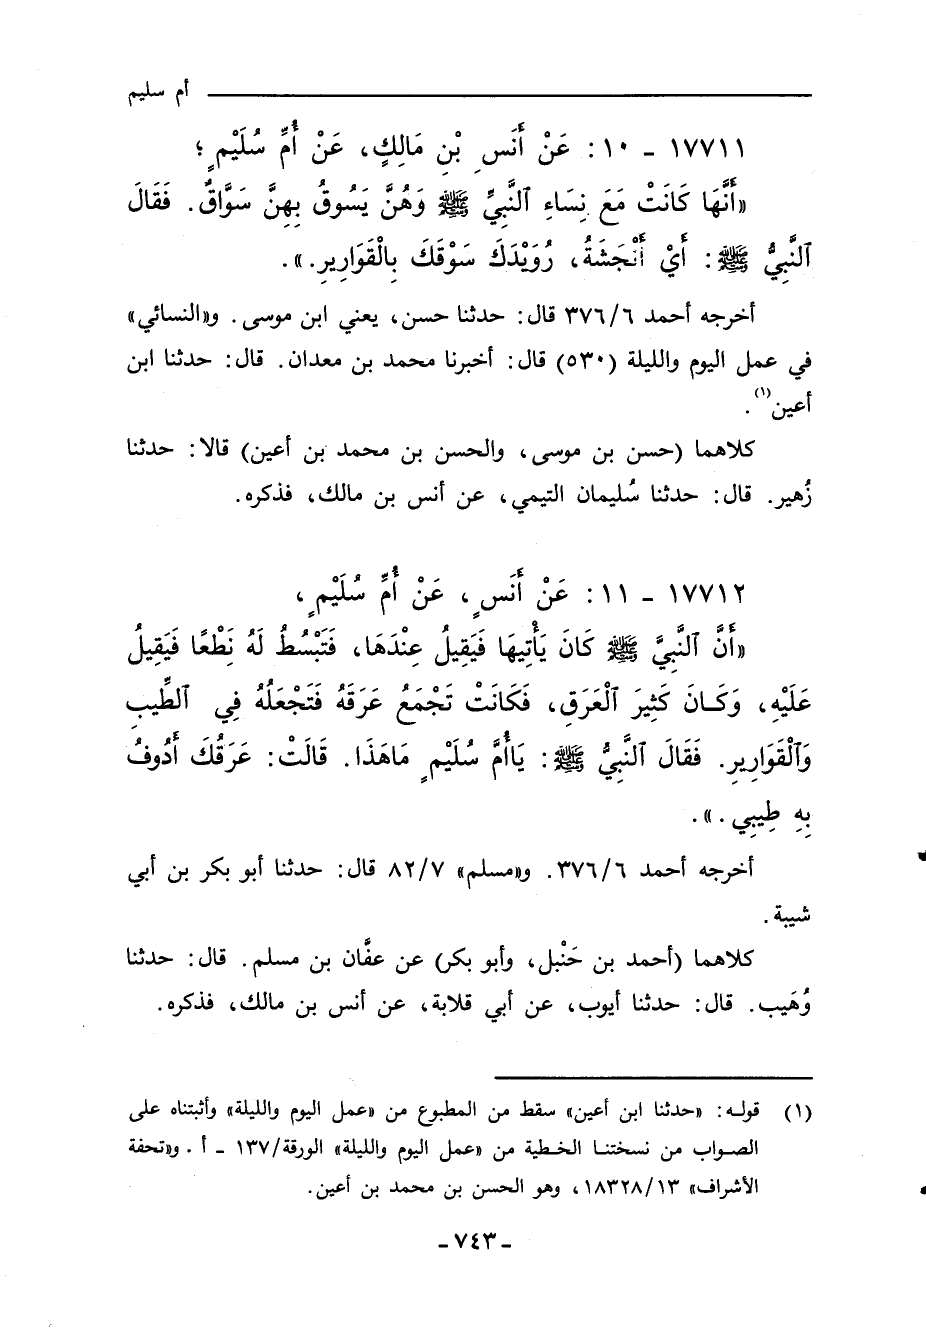 أم سليم
١٧٧١١ - ١٠: عَنْ أَنَسِ بْنِ مَالِكٍ، عَنْ أُمِّ سُلَيْمٍ؛
«أَنَّهَا كَانَتْ مَعَ نِسَاءِ ٱلنَّبِيِّ ﷺ وَهُنَّ يَسُوقُ بِهِنَّ سَوَّاقٌ. فَقَالَ
ٱلنَّبِيُّ ﷺ: أَيْ أَنْجَشَةُ، رُوَيْدَكَ سَوْقَكَ بِالْقَوَارِيرِ.».
أخرجه أحمد ٣٧٦/٦ قال: حدثنا حسن، يعني ابن موسى. و«النسائي»
في عمل اليوم والليلة (٥٣٠) قال: أخبرنا محمد بن معدان. قال: حدثنا ابن
أعين(١).
كلاهما (حسن بن موسى، والحسن بن محمد بن أعين) قالا: حدثنا
زُهير. قال: حدثنا سُليمان التيمي، عن أنس بن مالك، فذكره.
١٧٧١٢ - ١١: عَنْ أَنَسٍ، عَنْ أُمِّ سُلَيْمٍ،
«أَنَّ ٱلنَّبِيَّ ﷺ كَانَ يَأْتِيهَا فَيَقِيلُ عِنْدَهَا، فَتَبْسُطُ لَهُ نَطْعًا فَيَقِيلُ
عَلَيْهِ، وَكَانَ كَثِيرَ ٱلْعَرَقِ، فَكَانَتْ تَجْمَعُ عَرَقَهُ فَتَجْعَلُهُ فِي ٱلطِّيبِ
وَٱلْقَوَارِيرِ. فَقَالَ ٱلنَّبِيُّ ﷺ: يَاأُمَّ سُلَيْمٍ مَاهَذَا. قَالَتْ: عَرَقُكَ أَدُوفُ
بِهِ طِيبِي.».
أخرجه أحمد ٣٧٦/٦. و«مسلم» ٨٢/٧ قال: حدثنا أبو بكر بن أبي
شيبة.
كلاهما (أحمد بن حَنْبل، وأبو بكر) عن عفَّان بن مسلم. قال: حدثنا
وُهَيب. قال: حدثنا أيوب، عن أبي قلابة، عن أنس بن مالك، فذكره.
(١) قوله: «حدثنا ابن أعين» سقط من المطبوع من «عمل اليوم والليلة» وأثبتناه على
الصواب من نسختنا الخطية من «عمل اليوم والليلة» الورقة/١٣٧ - أ. و«تحفة
الأشراف» ١٨٣٢٨/١٣، وهو الحسن بن محمد بن أعين.
- ٧٤٣ -